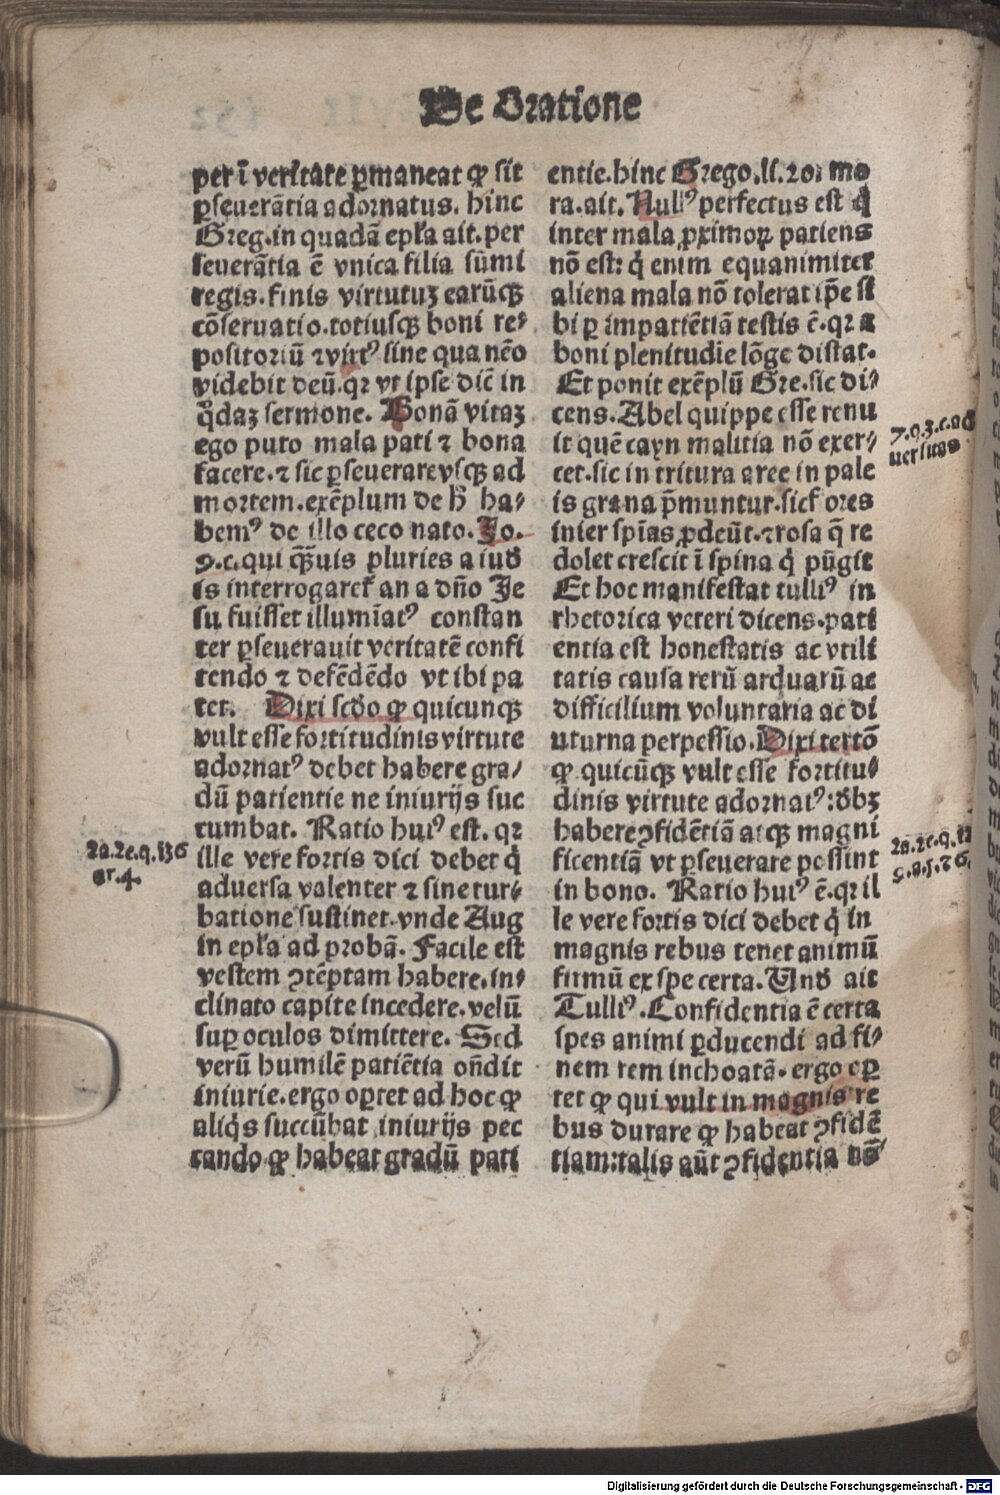 De Oratione
per ī veritate ꝑmaneat ꝙ sit
ꝑseuerātia adornatus. hinc
Greg. in quadā epła ait. per
seuerātia ē vnica filia sūmi
regis. finis virtutuꝫ earūqꝫ
cōseruatio. totiusqꝫ boni re⸗
positoriū ⁊ virtꝰ sine qua nēo
videbit deū. qꝛ vt ipse dič in
q̊daꝫ sermone. Bonā vitaꝫ
ego puto mala pati ⁊ bona
facere. ⁊ sic ꝑseuerare vsqꝫ ad
mortem. exēplum de h̄ ha⸗
bemꝰ de illo ceco nato. Jo.
9. c. qui qꝫuis pluries a iud
is interrogaret᷑ an a dño Je
su fuisset illumīatꝰ constan
ter ꝑseuerauit veritatē confi
tendo ⁊ defēdēdo vt ibi pa
tet. Dixi scđo ꝙ quicunqꝫ
vult esse fortitudinis virtute
adornatꝰ debet habere gra⸗
dū patientie ne iniurijs suc
cumbat. Ratio huiꝰ est. qꝛ
2a.2e.q.136
ar.4.
ille vere fortis dici debet q̇
aduersa valenter ⁊ sine tur⸗
batione sustinet. vnde Aug
in epła ad probā. Facile est
vestem ꝯtēptam habere. in⸗
clinato capite incedere. velū
suꝑ oculos dimittere. Sed
verū humilē patiētia oñdit
iniurie. ergo oꝑtet ad hoc ꝙ
aliq̇s succūbat iniurijs pec
cando ꝙ habeat gradū pati
entie. hinc Grego. li. 20. mo
ra. ait. Nullꝰ perfectus est q̇
inter mala ꝓximoꝝ patiens
nō est: q̇ enim equanimiter
aliena mala nō tolerat ip̄e si
bi ꝑ impatiētiā testis ē. qꝛ a
boni plenitudie lōge distat.
Et ponit exēplū Gre. sic di⸗
cens. Abel quippe esse renu
it quē cayn malitia nō exer⸗
7.q.3.c.ad
uersitas
cet. sic in tritura aree in pale
is grana p̄muntur. sic f̄ ores
inter spīas ꝓdeūt. ⁊ rosa q̄ re
dolet crescit ī spina q̇ pūgit
Et hoc manifestat tulliꝰ in
rhetorica veteri dicens. pati
entia est honestatis ac vtili
tatis causa rerū arduarū ac
difficilium voluntaria ac di
uturna perpessio. Dixi tertō
ꝙ quicūqꝫ vult esse fortitu⸗
dinis virtute adornatꝰ: dbꝫ
habere ꝯfidētiā atqꝫ magni
2a.2e.q.12
ficentiā vt ꝑseuerare possint
in bono. Ratio huiꝰ ē. qꝛ il
le vere fortis dici debet q̇ in
magnis rebus tenet animū
firmū ex spe certa. Und ait
Tulliꝰ. Confidentia ē certa
spes animi ꝑducendi ad fi⸗
nem rem inchoatā. ergo oꝑ
tet ꝙ qui vult in magnis re
bus durare ꝙ habeat ꝯfidē
tiam: talis aūt ꝯfidentia nō
Digitalisierung gefördert durch die Deutsche Forschungsgemeinschaft - DFG